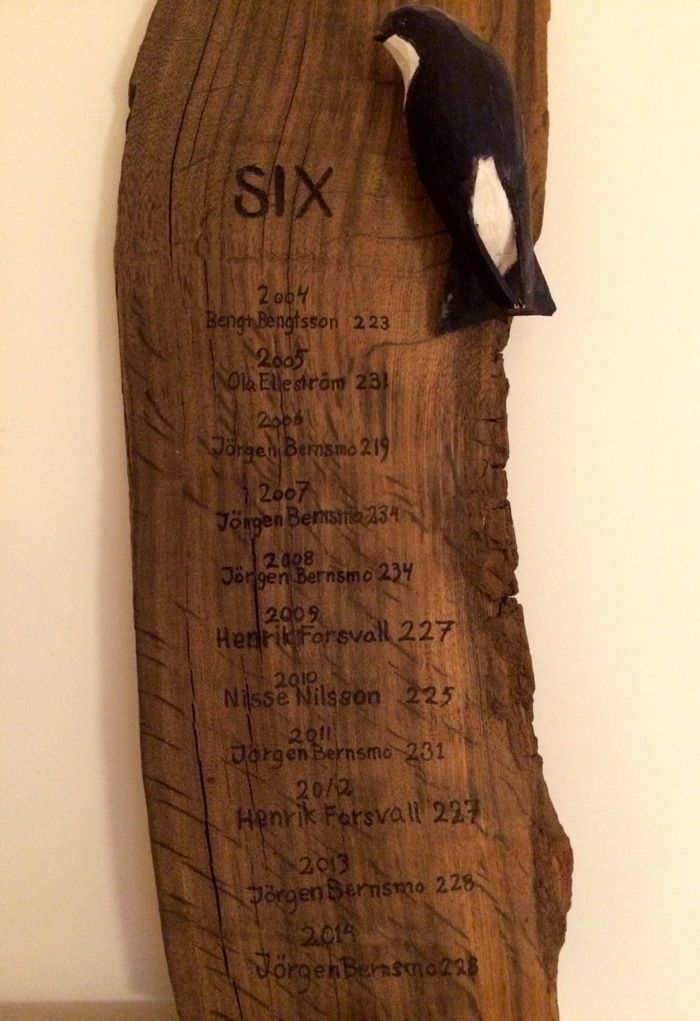 SIX
2004
Bengt Bengtsson 223
2005
Ola Elleström 231
2006
Jörgen Bernsmo 219
2007
Jörgen Bernsmo 234
2008
Jörgen Bernsmo 234
2009
Henrik Forsvall 227
2010
Nisse Nilsson 225
2011
Jörgen Bernsmo 231
2012
Henrik Forsvall 227
2013
Jörgen Bernsmo 228
2014
Jörgen Bernsmo 228